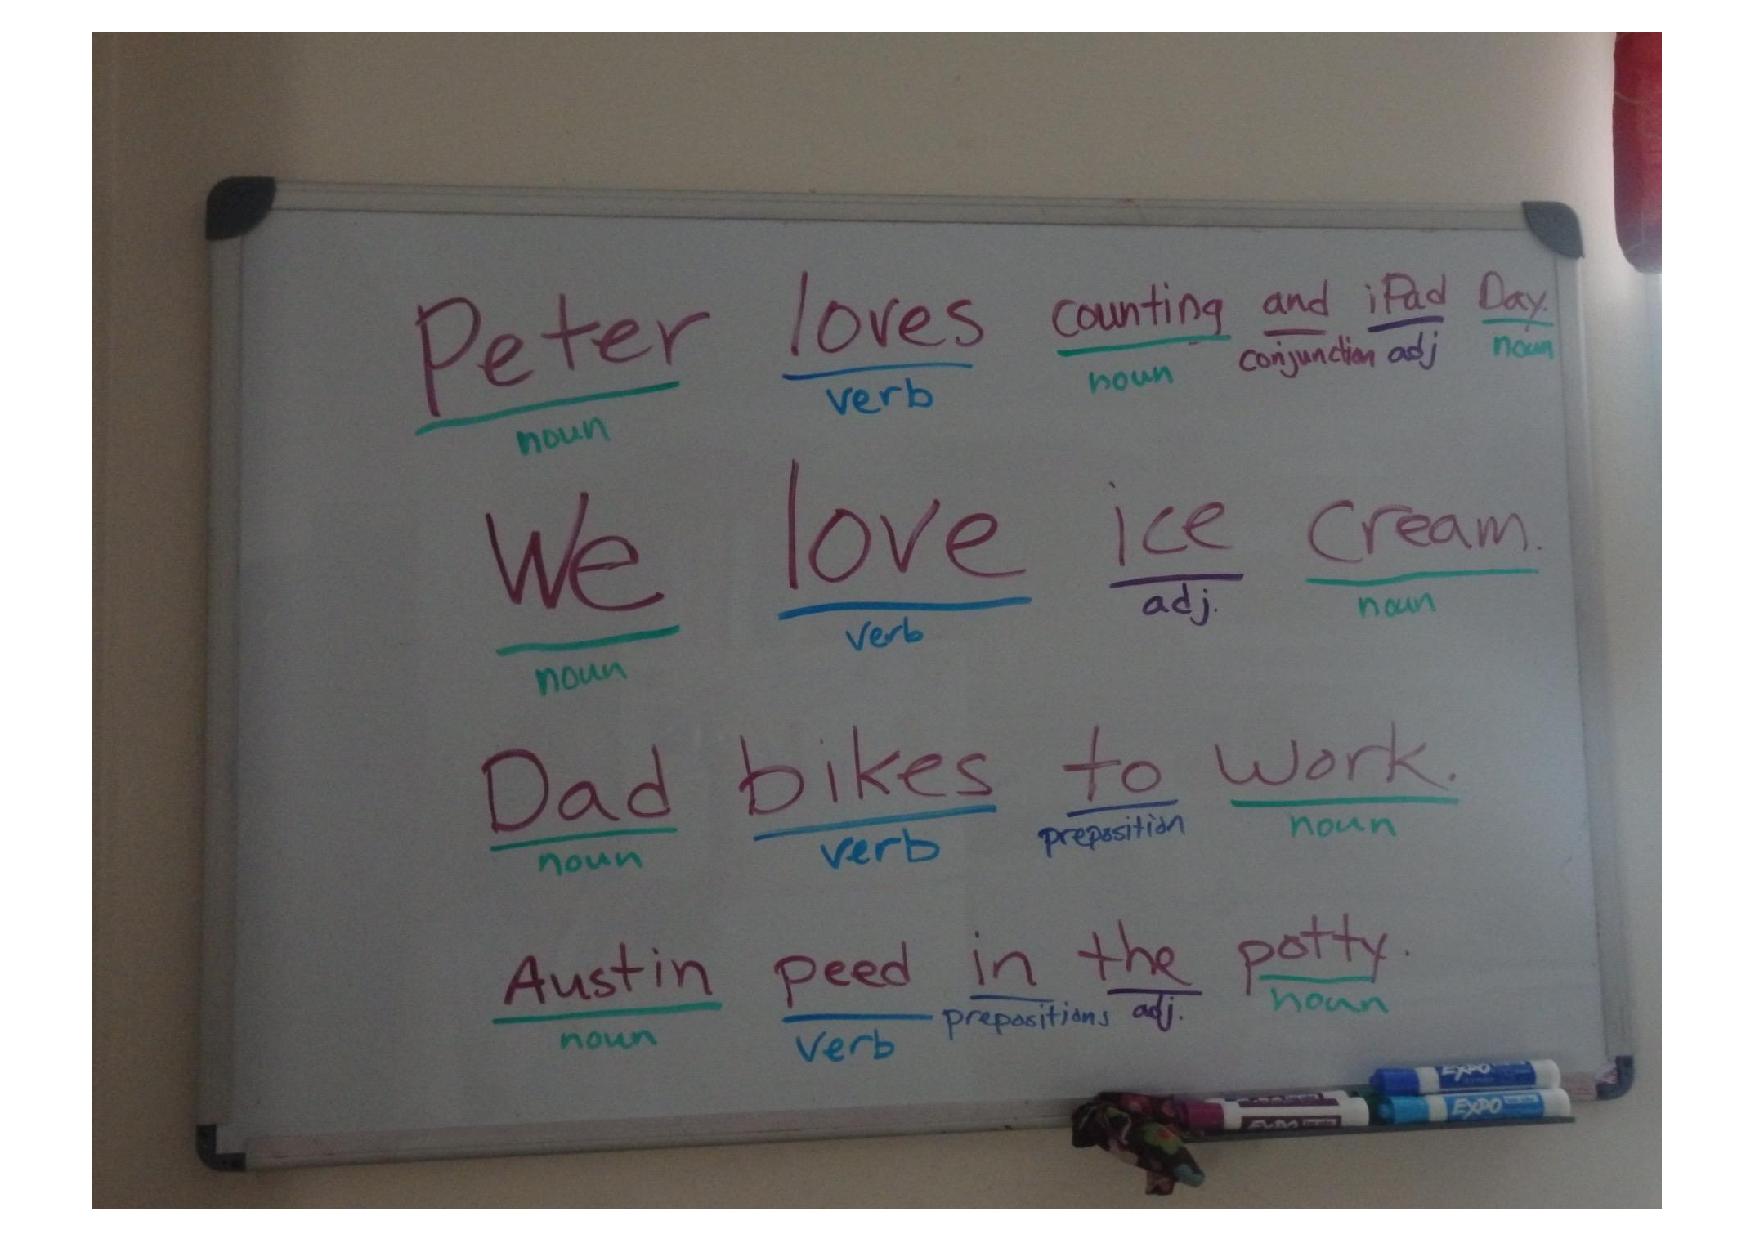 Peter loves counting and iPad Day.
noun verb noun conjunction adj noun
We love ice cream.
noun verb adj. noun
Dad bikes to work.
noun verb preposition noun
Austin peed in the potty.
noun verb prepositions adj. noun
EXPO
EXPO
EXPO